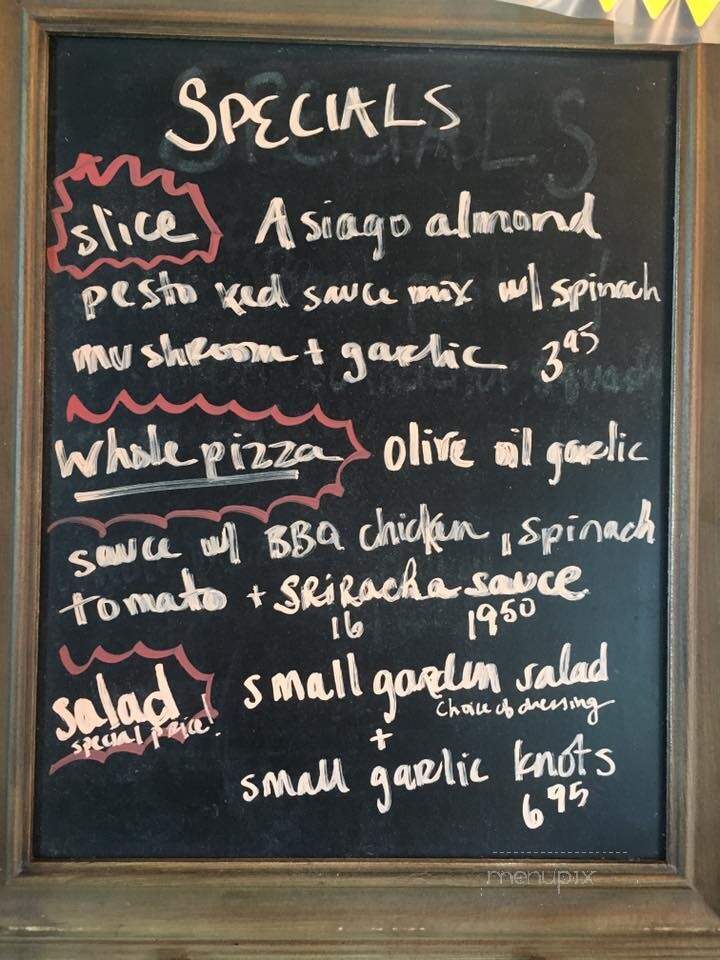 SPECIALS
slice Asiago almond
pesto red sauce mix w/ spinach
mushroom + garlic 3.95
Whole pizza olive oil garlic
sauce w/ BBQ chicken, spinach
tomato + SRiRacha sauce
16 19.50
salad small garden salad
special price! choice of dressing
+
small garlic knots
6.95
menupix